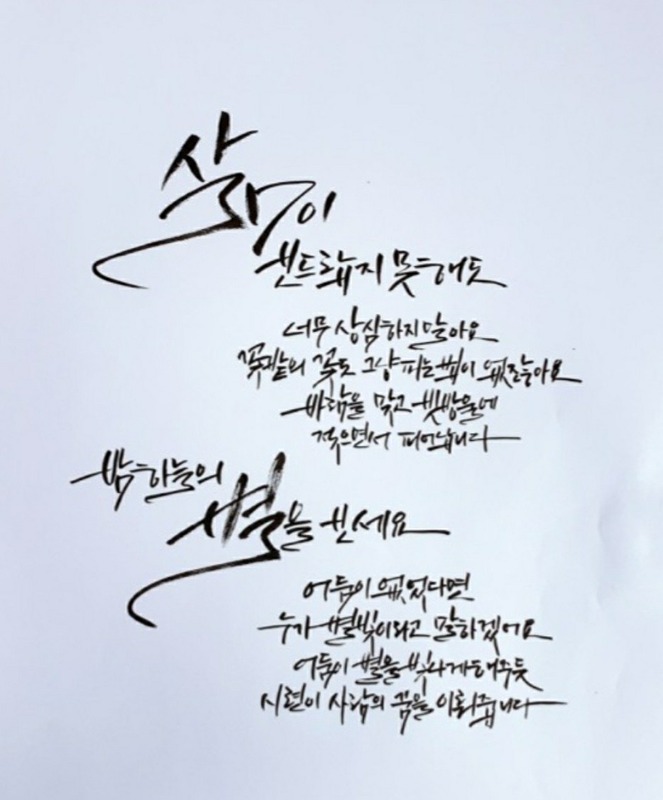 삶이
반드랍지 못해도
너무 상심하지 말아요
꽃밭의 꽃도 그냥 피는 법이 없잖아요
바람을 맞고 빗방울에
젖으면서 피어납니다
밤하늘의
별을 보세요
어둠이 없었다면
누가 별빛이라고 말하겠어요
어둠이 별을 빛나게 해주듯
시련이 사람의 꿈을 이뤄줍니다